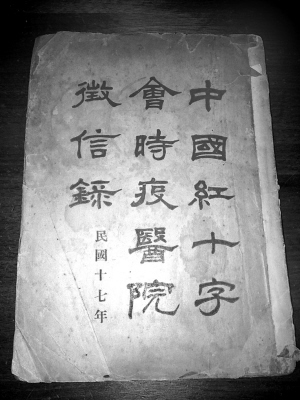 中國紅十字
會時疫醫院
徵信錄
民國十七年